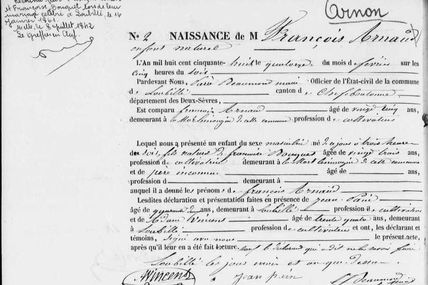 et Françoise Bouquet lors de leur
mariage célébré à Loubillé, le 16
janvier 1861
Melle, le 8 juillet 1862
Le greffier en Chef
Arnon
N.º 2 NAISSANCE DE M François Arnaud
enfant naturel
L'an mil huit cent cinquante-huit le quatorze du mois de février sur les
cinq heures du soir
Pardevant Nous Pierre Beaumont maire Officier de l'État-civil de la commune
de Loubillé canton de Chef-boutonne
département des Deux-Sèvres,
Est comparu françois Arnaud âgé de vingt cinq ans,
demeurant à de cette commune profession de cultivateur
Lequel nous a présenté un enfant du sexe masculin né à trois heures
du soir, fils naturel de françoise Bouquet âgée de vingt trois ans,
profession de cultivatrice, demeurant à de cette commune
et de père inconnu âgé de ans,
profession d demeurant à
auquel il a donné les prénoms de françois Arnaud
Lesdites déclaration et présentation faites en présence de jean
âgé de quarante ans, demeurant à Loubillé profession de cultivateur
et de Vincent âgé de trente quatre ans, demeurant
à Loubillé profession de cultivateur et ont, les déclarant et
témoins, signé avec nous
après qu'il en a été fait lecture,
Loubillé les jour, mois et an que dessus.
AVincent jean
Beaumont